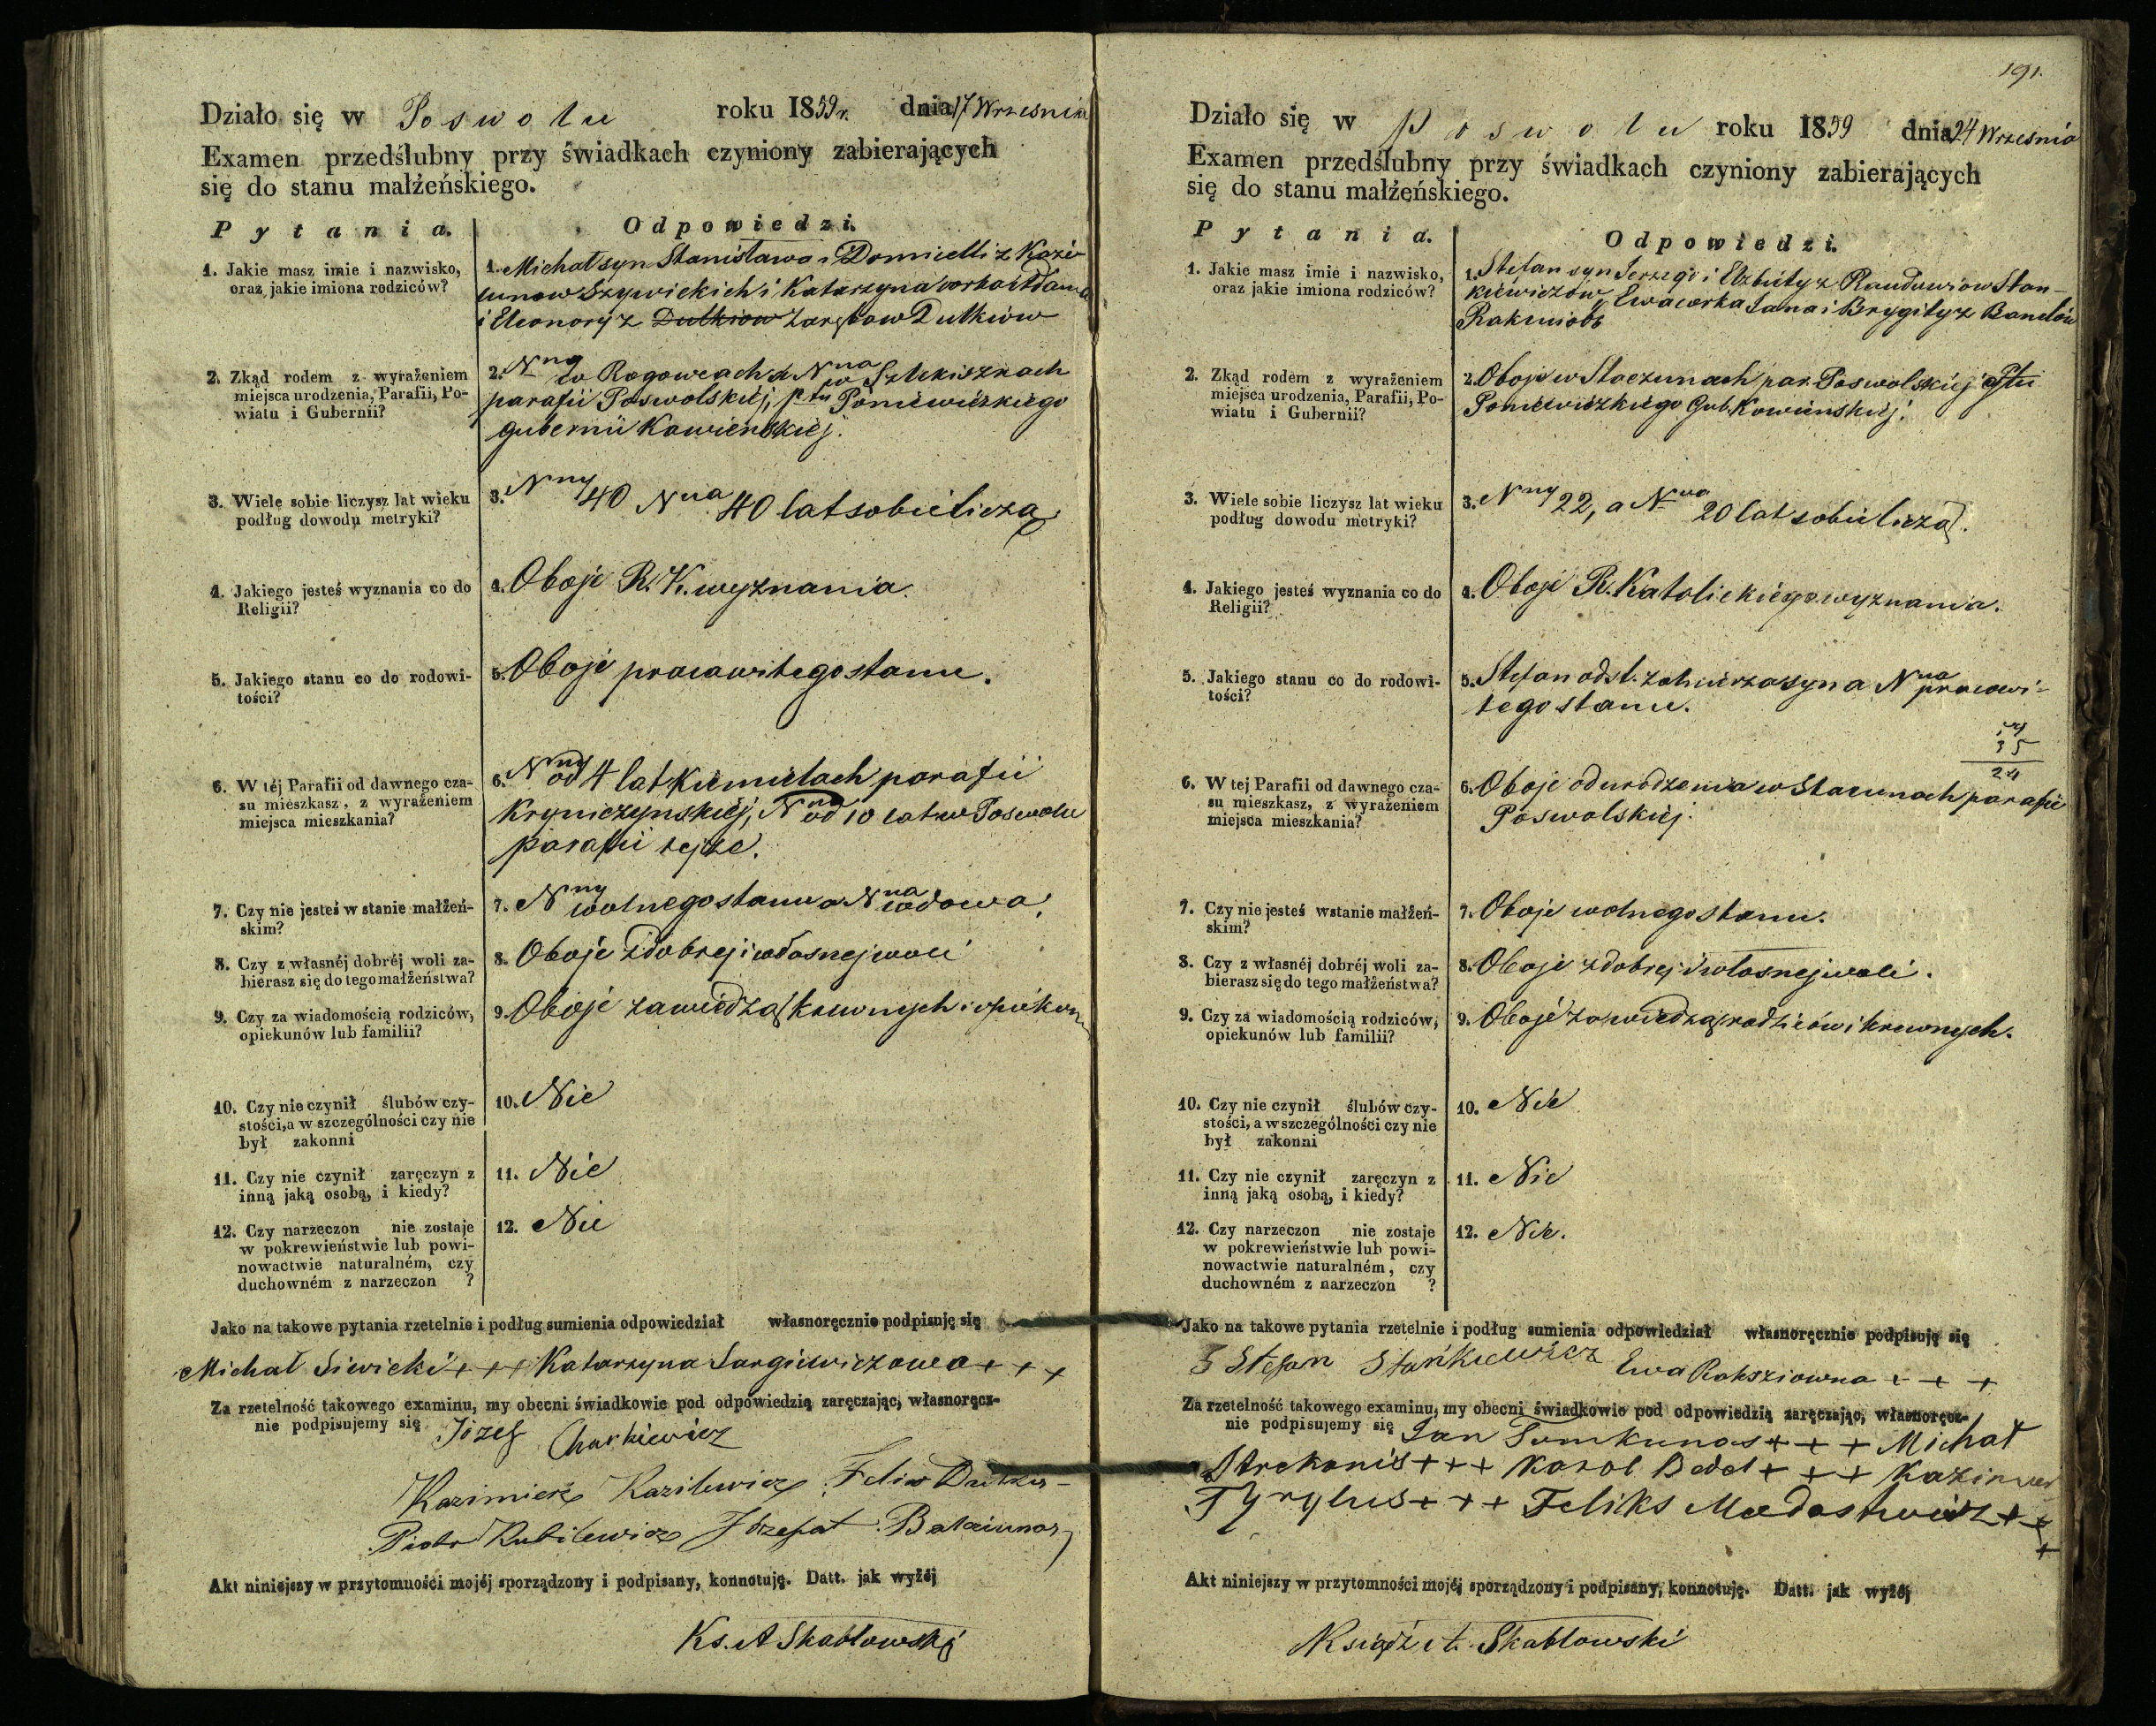 Działo się w Poswolu roku 1859 r. dnia 17 Wrzesnia
Examen przedślubny przy świadkach czyniony zabierających
się do stanu małżeńskiego.
Pytania. Odpowiedzi.
1. Jakie masz imie i nazwisko,
oraz jakie imiona rodziców?
1. Michał syn Stanisława i Domicelli z Kazie
lunow Szywickich i Katarzyna corka Adama
i Eleonory z Dutkiow Zarębow Dutkiow
2. Zkąd rodem z wyrażeniem
miejsca urodzenia, Parafii, Po-
wiatu i Gubernii?
2. Nny w Rogowcach a Nna w
parafii Poswolskiéj, Ptu Poniewiezkiego
gubernii Kowienskiej.
3. Wiele sobie liczysz lat wieku
podług dowodu metryki?
3. Nny 40 Nna 40 lat sobie liczą
4. Jakiego jesteś wyznania co do
Religii?
4. Oboje R. K. wyznania.
5. Jakiego stanu co do rodowi-
tości?
5. Oboje pracowitego stanu.
6. W téj Parafii od dawnego cza-
su mieszkasz, z wyrażeniem
miejsca mieszkania?
6. Nny od 4 lat Kiemielach parafii
Kryniczynskiéj, Nna od 10 lat w Poswolu
parafii tejże.
7. Czy nie jesteś w stanie małżeń-
skim?
7. Nny wolnego stanu a Nna wdowa.
8. Czy z własnéj dobréj woli za-
bierasz się do tego małżeństwa?
8. Oboje z dobrej i własnej woli
9. Czy za wiadomością rodziców,
opiekunów lub familii?
9. Oboje za wiedzą krewnych i opiekun
10. Czy nie czynił ślubów czy-
stości, a w szczególności czy nie
był zakonni
10. Nie
11. Czy nie czynił zaręczyn z
inną jaką osobą, i kiedy?
11. Nie
12. Czy narzeczon nie zostaje
w pokrewieństwie lub powi-
nowactwie naturalném, czy
duchowném z narzeczon ?
12. Nie
Jako na takowe pytania rzetelnie i podług sumienia odpowiedział własnoręcznie podpisuję się
Michał Siwicki + + + Katarzyna Sargiewiczowa + + +
Za rzetelność takowego examinu, my obecni świadkowie pod odpowiedzią zaręczając, własnoręcz-
nie podpisujemy się Józef Churkiewicz
Kazimierz Kazilewicz Felix Dutkie-
Piotr Kubilewicz Józefat Balciunas
Akt niniejszy w przytomności mojéj sporządzony i podpisany, konnotuję. Datt. jak wyżéj
Ks. A Skabłowski
191.
Działo się w Poswolu roku 1859 dnia 24 Wrzesnia
Examen przedślubny przy świadkach czyniony zabierających
się do stanu małżeńskiego.
Pytania. Odpowiedzi.
1. Jakie masz imie i nazwisko,
oraz jakie imiona rodziców?
1. Stefan syn Jerzego i Elzbiéty z Rauduwiow Stan-
kiewiczów, Ewa corka Jana i Brygity z Bandów
2. Zkąd rodem z wyrażeniem
miejsca urodzenia, Parafii, Po-
wiatu i Gubernii?
2. Oboje w Staczunach par. Poswolskiej Ptu
Poniewiezkiego Gub. Kowienskiéj.
3. Wiele sobie liczysz lat wieku
podług dowodu metryki?
3. Nny 22, a Nna 20 lat sobie liczą.
4. Jakiego jesteś wyznania co do
Religii?
4. Oboje R. Katolickiego wyznania.
5. Jakiego stanu co do rodowi-
tości?
5. Stefan odst. zołnierza syn a Nna pracowi-
tego stanu.
35
24
6. W tej Parafii od dawnego cza-
su mieszkasz, z wyrażeniem
miejsca mieszkania?
6. Oboje od urodzenia w Staczunach parafii
Poswolskiéj.
7. Czy nie jesteś w stanie małżeń-
skim?
7. Oboje wolnego stanu.
8. Czy z własnéj dobréj woli za-
bierasz się do tego małżeństwa?
8. Oboje z dobrej i własnej woli.
9. Czy za wiadomością rodziców,
opiekunów lub familii?
9. Oboje za wiedzą rodzicow i krewnych.
10. Czy nie czynił ślubów czy-
stości, a w szczególności czy nie
był zakonni
10. Nie
11. Czy nie czynił zaręczyn z
inną jaką osobą, i kiedy?
11. Nie
12. Czy narzeczon nie zostaje
w pokrewieństwie lub powi-
nowactwie naturalném, czy
duchowném z narzeczon ?
12. Nie.
Jako na takowe pytania rzetelnie i podług sumienia odpowiedział własnoręcznie podpisuję się
Stefan Stańkiewicz Ewa Raksziowna + + +
Za rzetelność takowego examinu, my obecni świadkowie pod odpowiedzią zaręczając, własnoręcz-
nie podpisujemy się Jan Tumkunas + + + Michał
Strekonis + + + Karol Bedel + + + Kazimier
Tyrylus + + + Feliks Madastwicz + +
+
Akt niniejszy w przytomności mojéj sporządzony i podpisany, konnotuję. Datt. jak wyżéj
Ksiądz A. Skabłowski